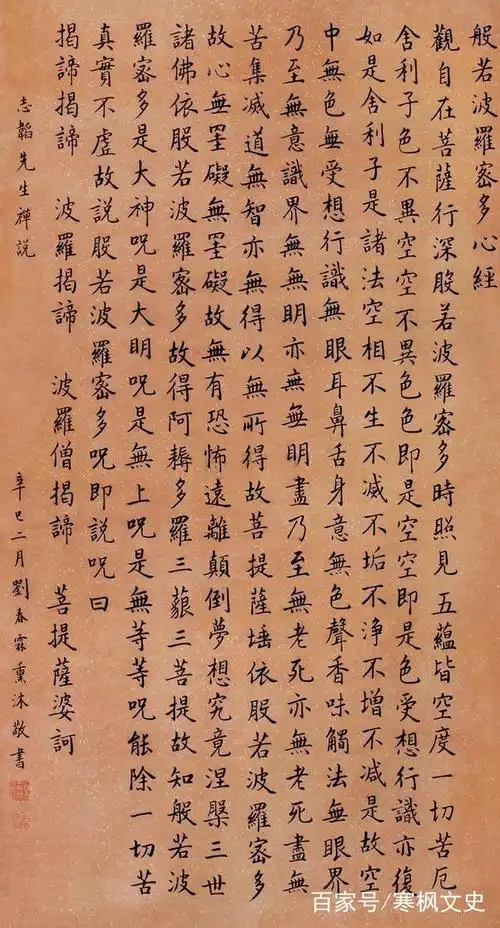 般若波羅密多心經
觀自在菩薩行深般若波羅密多時照見五蘊皆空度一切苦厄
舍利子色不異空空不異色色即是空空即是色受想行識亦復
如是舍利子是諸法空相不生不滅不垢不浄不增不減是故空
中無色無受想行識無眼耳鼻舌身意無色聲香味觸法無眼界
乃至無意識界無無明亦無無明盡乃至無老死亦無老死盡無
苦集滅道無智亦無得以無所得故菩提薩埵依般若波羅密多
故心無罣礙無罣礙故無有恐怖遠離顛倒夢想究竟涅槃三世
諸佛依般若波羅密多故得阿耨多羅三藐三菩提故知般若波
羅密多是大神呪是大明呪是無上呪是無等等呪能除一切苦
真實不虛故說般若波羅密多呪即說呪曰
揭諦揭諦 波羅揭諦 波羅僧揭諦 菩提薩婆訶
志韜先生禪説
辛巳二月劉春霖熏沐敬書
百家号/寒枫文史